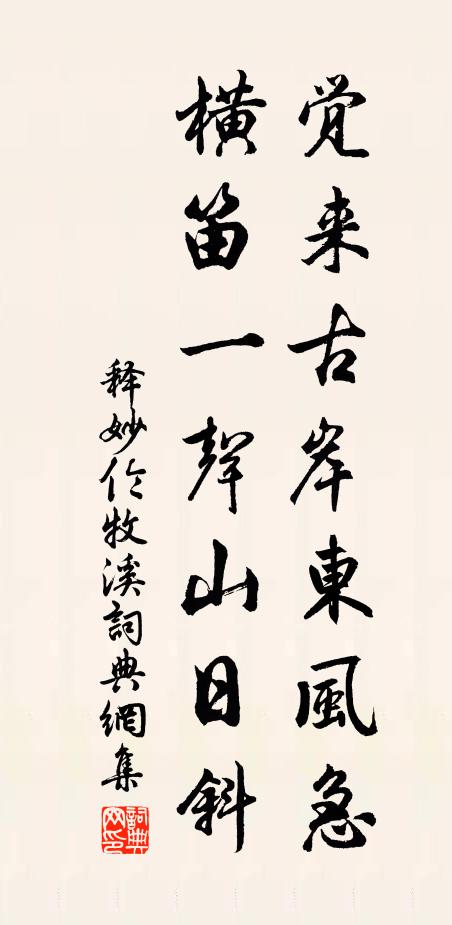 覚来古岸東風急
橫笛一聲山日斜
释妙伦牧溪詞典網集
詞典網印